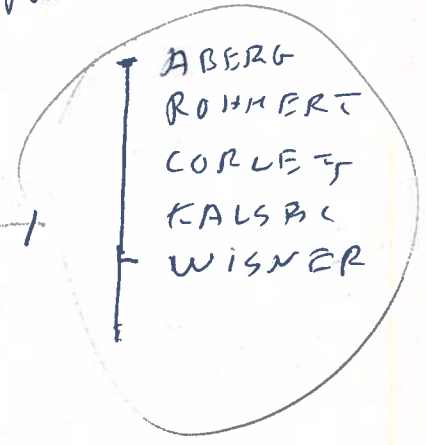 ABERG
ROHMERT
CORLETT
WISNER